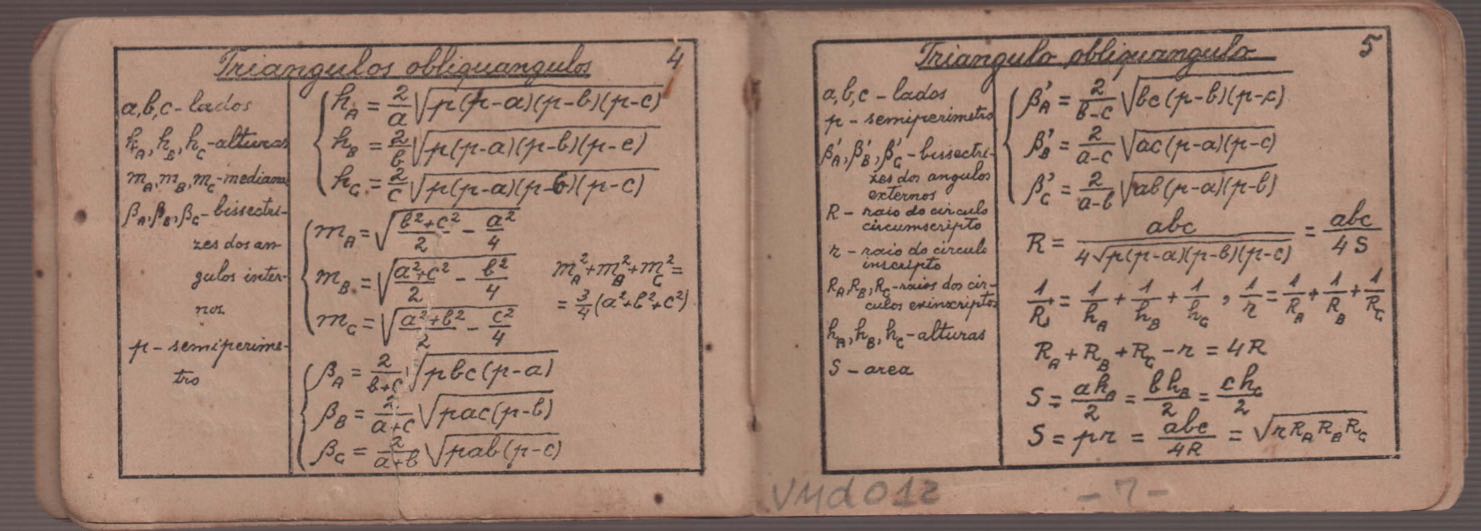 Triangulos obliquangulos 4
a,b,c - lados
h_A, h_B, h_C - alturas
m_A, m_B, m_C - mediana
β_A, β_B, β_C - bissectri-
zes dos an-
gulos inter-
nos
p - semiperime-
tro
h_A = 2/a √p(p-a)(p-b)(p-c)
h_B = 2/b √p(p-a)(p-b)(p-c)
h_C = 2/c √p(p-a)(p-b)(p-c)
m_A = √(b²+c²)/2 - a²/4
m_B = √(a²+c²)/2 - b²/4
m_C = √(a²+b²)/2 - c²/4
m_A² + m_B² + m_C² =
= 3/4 (a²+b²+c²)
β_A = 2/(b+c) √pbc(p-a)
β_B = 2/(a+c) √pac(p-b)
β_C = 2/(a+b) √pab(p-c)
Triangulo obliquangulo 5
a,b,c - lados
p - semiperimetro
β'_A, β'_B, β'_C - bissectri-
zes dos angulos
externos
R - raio do circulo
circumscripto
r - raio do circulo
inscripto
R_A, R_B, R_C - raios dos cir-
culos exinscriptos
h_A, h_B, h_C - alturas
S - area
β'_A = 2/(b-c) √bc(p-b)(p-c)
β'_B = 2/(a-c) √ac(p-a)(p-c)
β'_C = 2/(a-b) √ab(p-a)(p-b)
R = abc/(4√p(p-a)(p-b)(p-c)) = abc/4S
1/R = 1/h_A + 1/h_B + 1/h_C , 1/r = 1/R_A + 1/R_B + 1/R_C
R_A + R_B + R_C - r = 4R
S = ah_A/2 = bh_B/2 = ch_C/2
S = pr = abc/4R = √r R_A R_B R_C
VMd012 - 7 -